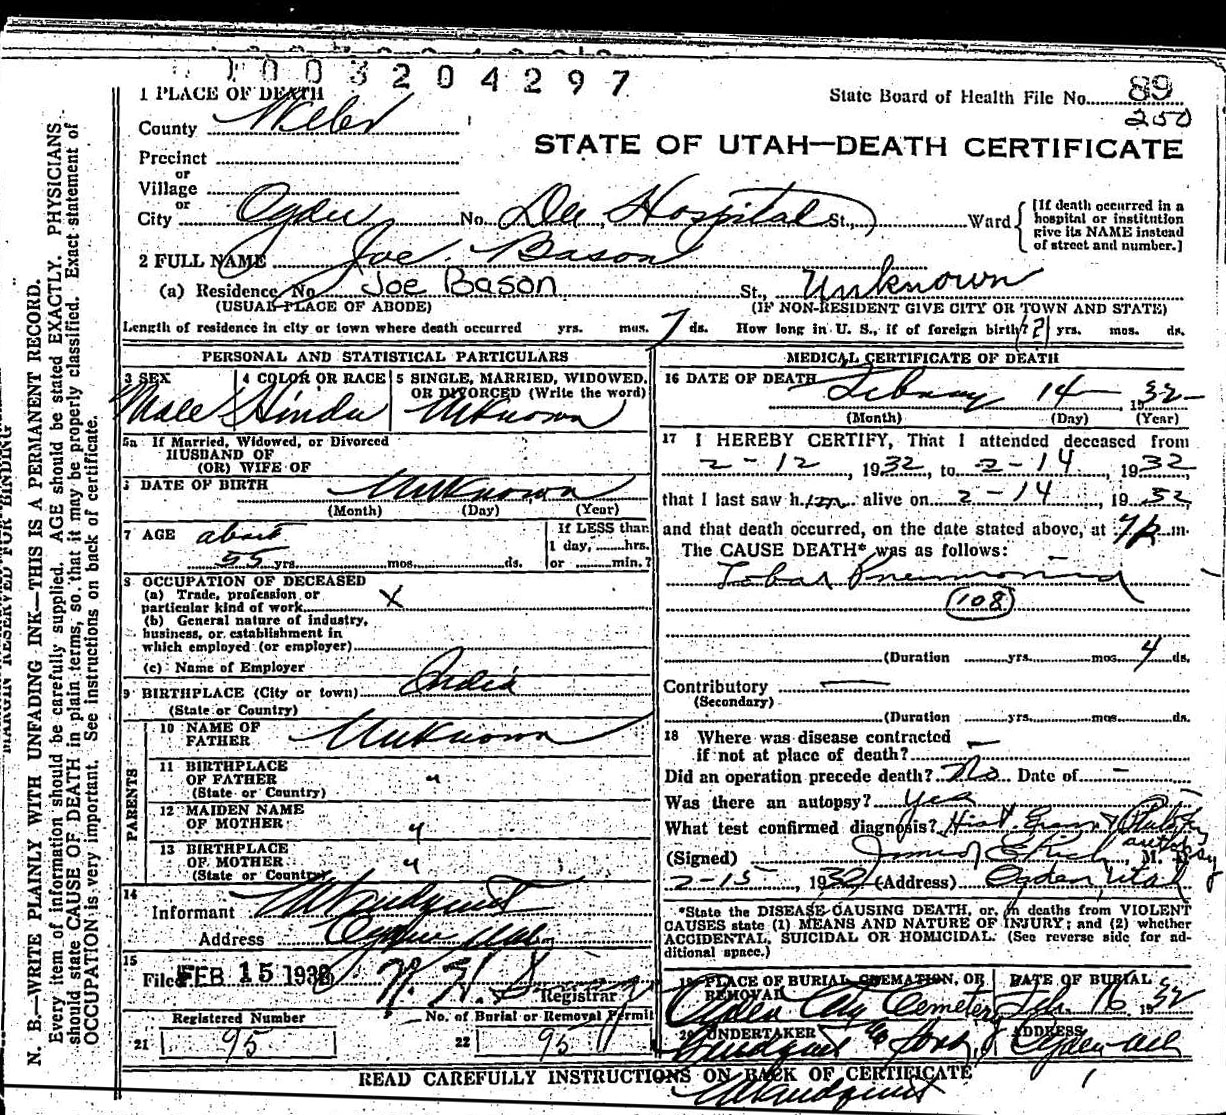 1003204297
State Board of Health File No. 89
250
1 PLACE OF DEATH
County Weber
STATE OF UTAH—DEATH CERTIFICATE
Precinct
or
Village
or
City Ogden No. Dee Hospital St., Ward
[If death occurred in a hospital or institution give its NAME instead of street and number.]
2 FULL NAME Joe Bason
(a) Residence No. Joe Bason St., Unknown
(USUAL PLACE OF ABODE) (IF NON-RESIDENT GIVE CITY OR TOWN AND STATE)
Length of residence in city or town where death occurred yrs. mos. 7 ds. How long in U. S., if of foreign birth? (?) yrs. mos. ds.
PERSONAL AND STATISTICAL PARTICULARS
3 SEX Male
4 COLOR OR RACE Hindu
5 SINGLE, MARRIED, WIDOWED, OR DIVORCED (Write the word) Unknown
5a If Married, Widowed, or Divorced
HUSBAND OF
(OR) WIFE OF
DATE OF BIRTH Unknown
(Month) (Day) (Year)
7 AGE about
55 yrs. mos. ds.
If LESS than
1 day, hrs.
or min.?
8 OCCUPATION OF DECEASED
(a) Trade, profession or
particular kind of work X
(b) General nature of industry,
business, or establishment in
which employed (or employer)
(c) Name of Employer
9 BIRTHPLACE (City or town) India
(State or Country)
PARENTS
10 NAME OF
FATHER Unknown
11 BIRTHPLACE
OF FATHER "
(State or Country)
12 MAIDEN NAME
OF MOTHER "
13 BIRTHPLACE
OF MOTHER "
(State or Country)
14
Informant
Address Ogden Utah
15
Filed FEB 15 1932
Registrar
Registered Number
21 95
No. of Burial or Removal Permit
22 95
MEDICAL CERTIFICATE OF DEATH
16 DATE OF DEATH February 14 1932
(Month) (Day) (Year)
17 I HEREBY CERTIFY, That I attended deceased from
2-12, 1932, to 2-14, 1932
that I last saw him alive on 2-14, 1932
and that death occurred, on the date stated above, at 7 p. m.
The CAUSE DEATH* was as follows:
Lobar Pneumonia
108
(Duration yrs. mos. 4 ds.
Contributory —
(Secondary)
(Duration yrs. mos. ds.
18 Where was disease contracted
if not at place of death? —
Did an operation precede death? No Date of —
Was there an autopsy? Yes
What test confirmed diagnosis? Hist.
autopsy
(Signed) Junior E Rich M. D.
2-15, 1932 (Address) Ogden, Utah
*State the DISEASE CAUSING DEATH, or, in deaths from VIOLENT
CAUSES state (1) MEANS AND NATURE OF INJURY; and (2) whether
ACCIDENTAL, SUICIDAL OR HOMICIDAL. (See reverse side for ad-
ditional space.)
19 PLACE OF BURIAL, CREMATION, OR
REMOVAL
Ogden City Cemetery
DATE OF BURIAL
Feb. 16 1932
20 UNDERTAKER
ADDRESS
Ogden
READ CAREFULLY INSTRUCTIONS ON BACK OF CERTIFICATE
MARGIN RESERVED FOR BINDING
N. B.—WRITE PLAINLY WITH UNFADING INK—THIS IS A PERMANENT RECORD.
Every item of information should be carefully supplied. AGE should be stated EXACTLY. PHYSICIANS
should state CAUSE OF DEATH in plain terms, so that it may be properly classified. Exact statement of
OCCUPATION is very important. See instructions on back of certificate.